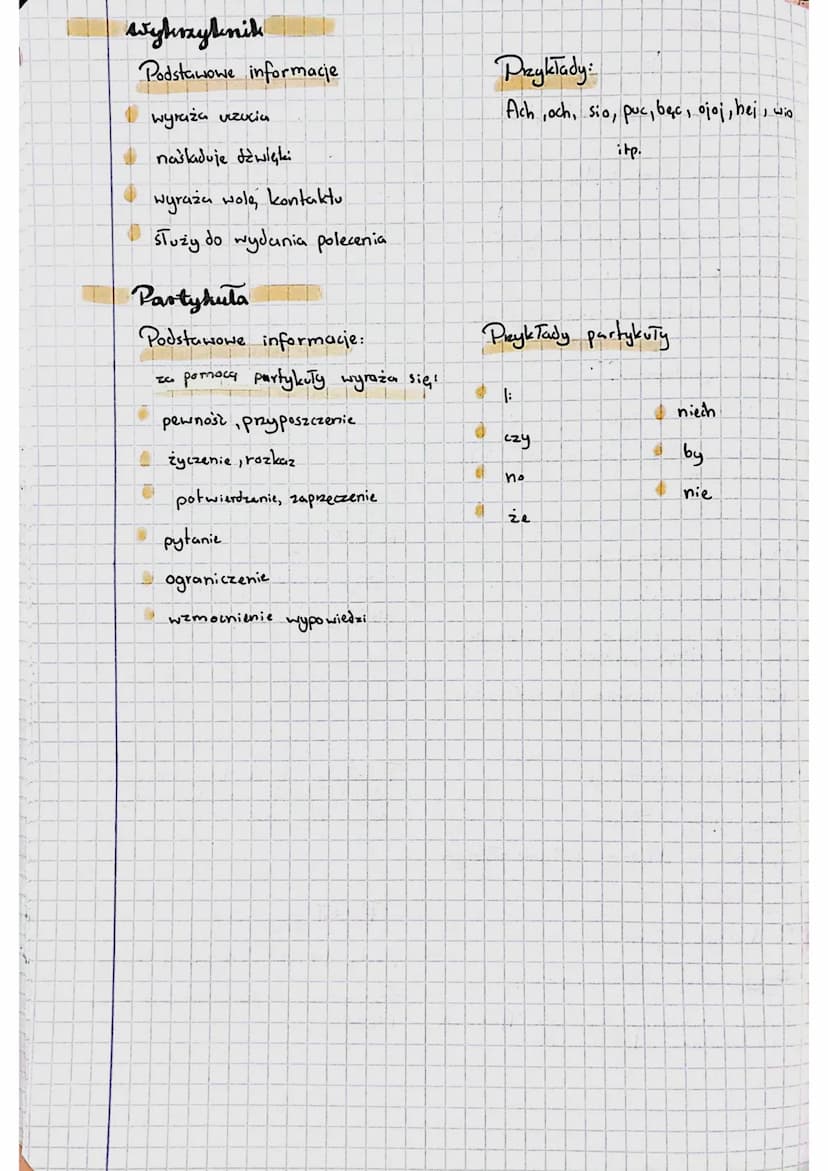 Wykrzyknik
Podstawowe informacje
wyraża uczucia
naśladuje dźwięki
wyraża wolę, kontaktu
służy do wydania polecenia
Przykłady:
Ach, och, sio, puc, bęc, ojoj, hej, wio
itp.
Partykuła
Podstawowe informacje:
za pomocą partykuły wyraża się:
pewność, przyposzczenie
życzenie, rozkaz
potwierdzenie, zaprzeczenie
pytanie
ograniczenie
wzmocnienie wypowiedzi
Przykłady partykuły
li
czy
no
że
niech
by
nie